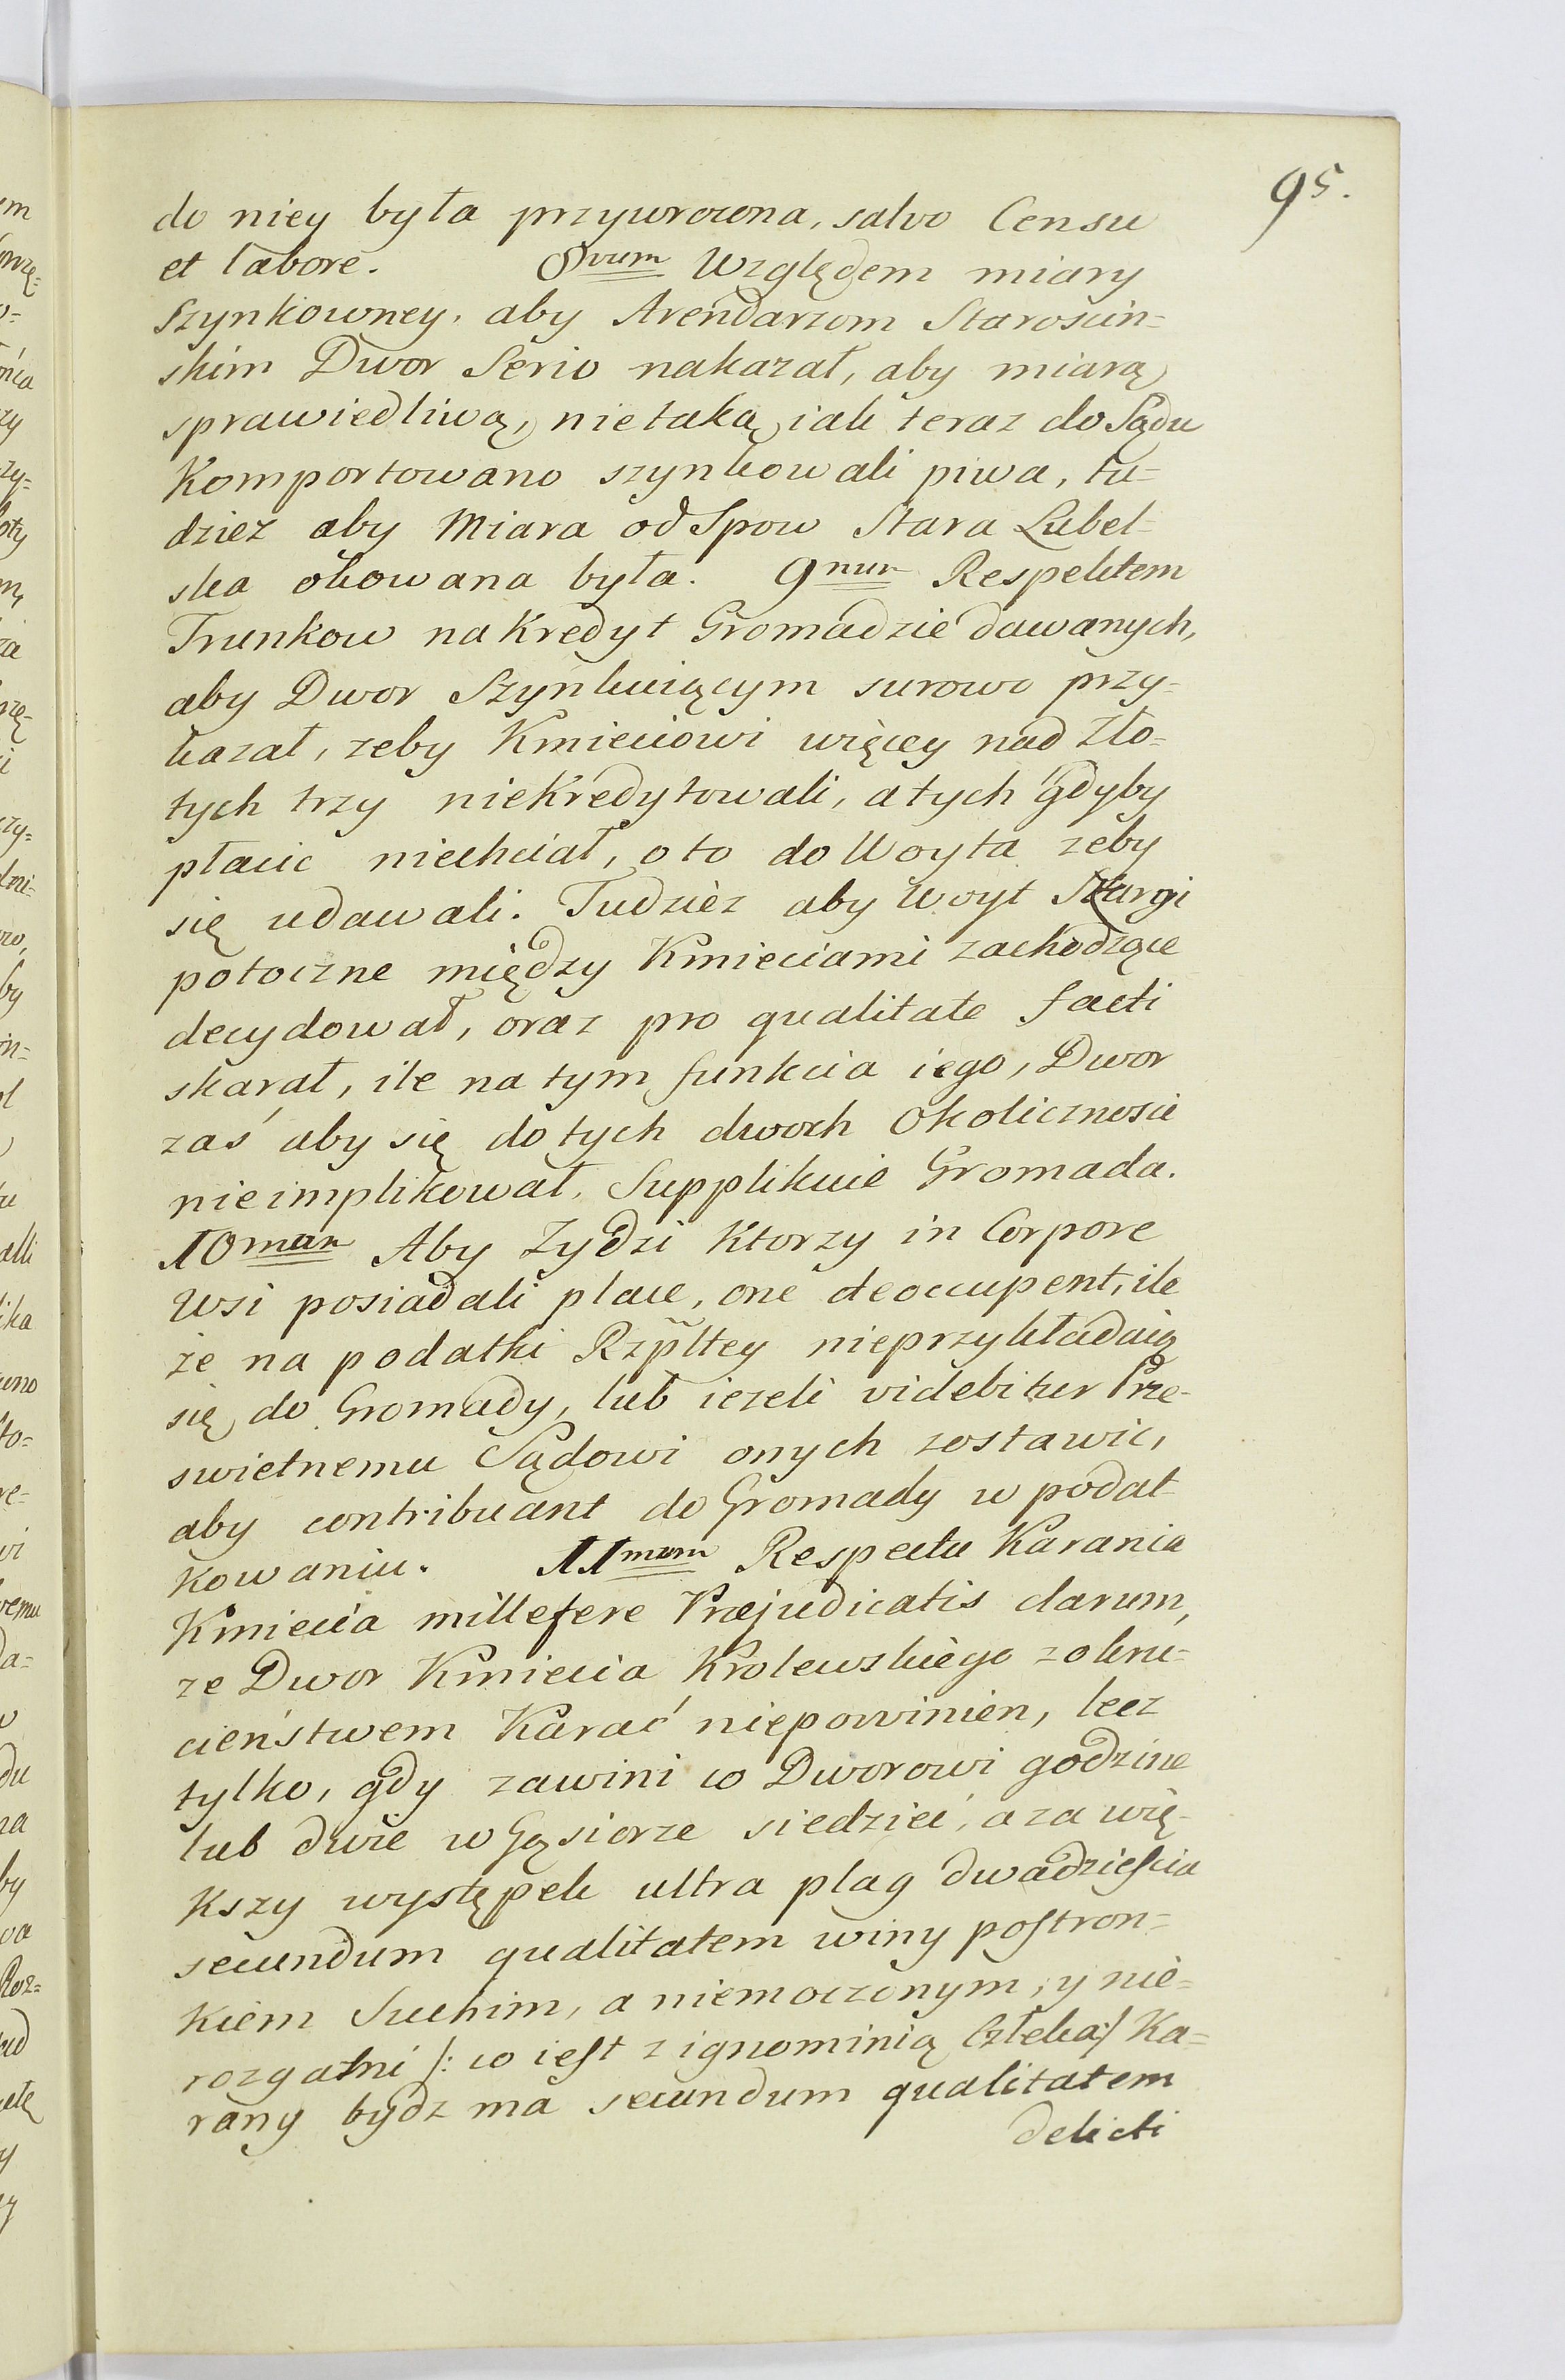 95.
do niey była przywrocona, salvo Censu
et labore. 8vum Względem miary
Szynkowney, aby Arendarzom Starościn=
skim Dwor Serio nakazał, aby miarą
sprawiedliwą, nietaką iak teraz do Sądu
Komportowano szynkowali piwa, tu=
dziez aby Miara od Spow Stara Lubel=
ska okowana była. 9num Respektem
Trunkow na Kredyt Gromadzie dawanych,
aby Dwor Szynkuiącym surowo przy=
kazał, zeby Kmieciowi więcey nad Zło=
tych trzy niekredytowali, a tych gdyby
płacic niechciał, o to do Woyta zeby
się udawali. Tudziez aby Woyt Skargi
potoczne między Kmieciami zachodzące
decydował, oraz pro qualitate facti
skarał, ile na tym funkcia iego, Dwor
zaś aby się do tych dwoch Okolicznosci
nieimplikował, Supplikuie Gromada.
10mum Aby Zydzi Ktorzy in Corpore
Wsi posiadali place, one deoccupent, ile
że na podatki Rzpltey nieprzykładaią
się do Gromady, lub iezeli videbitur Prze-
swietnemu Sądowi onych zostawic,
aby contribuant do Gromady w podat
kowaniu. 11mum Respectu Karania
Kmiecia millefere Præjudicatis clarum,
ze Dwor Kmiecia Krolewskiego z okru=
cieństwem Karać niepowinien, lecz
tylko, gdy zawini co Dworowi godzine
lub dwie w Gąsiorze siedzieć, a za wię-
kszy występek ultra plag dwadzieścia
secundum qualitatem winy postron=
kiem Suchim, a niemoczonym, y nie=
rozgatni /: co iest z ignominią Człeka:/ Ka=
rany bydz ma secundum qualitatem
delicti